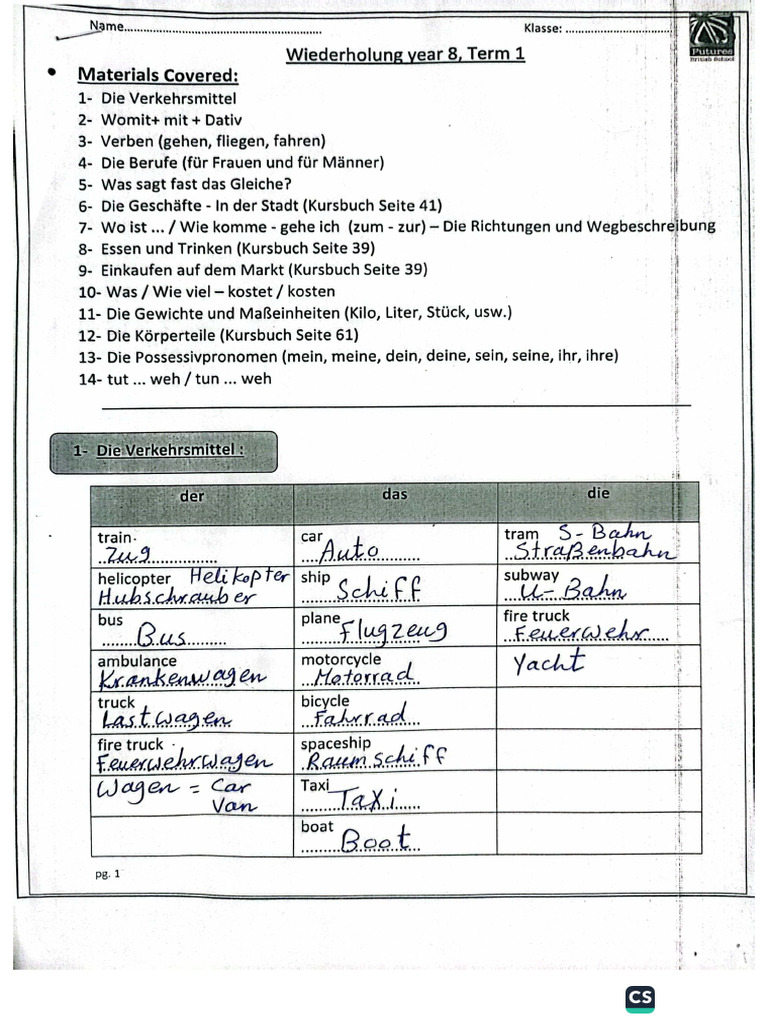 Name.......................................................... Klasse: ................................
Futures
British School
Wiederholung year 8, Term 1
• Materials Covered:
1- Die Verkehrsmittel
2- Womit+ mit + Dativ
3- Verben (gehen, fliegen, fahren)
4- Die Berufe (für Frauen und für Männer)
5- Was sagt fast das Gleiche?
6- Die Geschäfte - In der Stadt (Kursbuch Seite 41)
7- Wo ist ... / Wie komme - gehe ich (zum - zur) – Die Richtungen und Wegbeschreibung
8- Essen und Trinken (Kursbuch Seite 39)
9- Einkaufen auf dem Markt (Kursbuch Seite 39)
10- Was / Wie viel – kostet / kosten
11- Die Gewichte und Maßeinheiten (Kilo, Liter, Stück, usw.)
12- Die Körperteile (Kursbuch Seite 61)
13- Die Possessivpronomen (mein, meine, dein, deine, sein, seine, ihr, ihre)
14- tut ... weh / tun ... weh
1- Die Verkehrsmittel :
der das die
train car tram S-Bahn
Zug Auto Straßenbahn
helicopter Helikopter ship subway
Hubschrauber Schiff U-Bahn
bus plane fire truck
Bus Flugzeug Feuerwehr
ambulance motorcycle Yacht
Krankenwagen Motorrad
truck bicycle
Lastwagen Fahrrad
fire truck spaceship
Feuerwehrwagen Raumschiff
Wagen = Car Taxi
Van Taxi
boat
Boot
pg. 1
CS